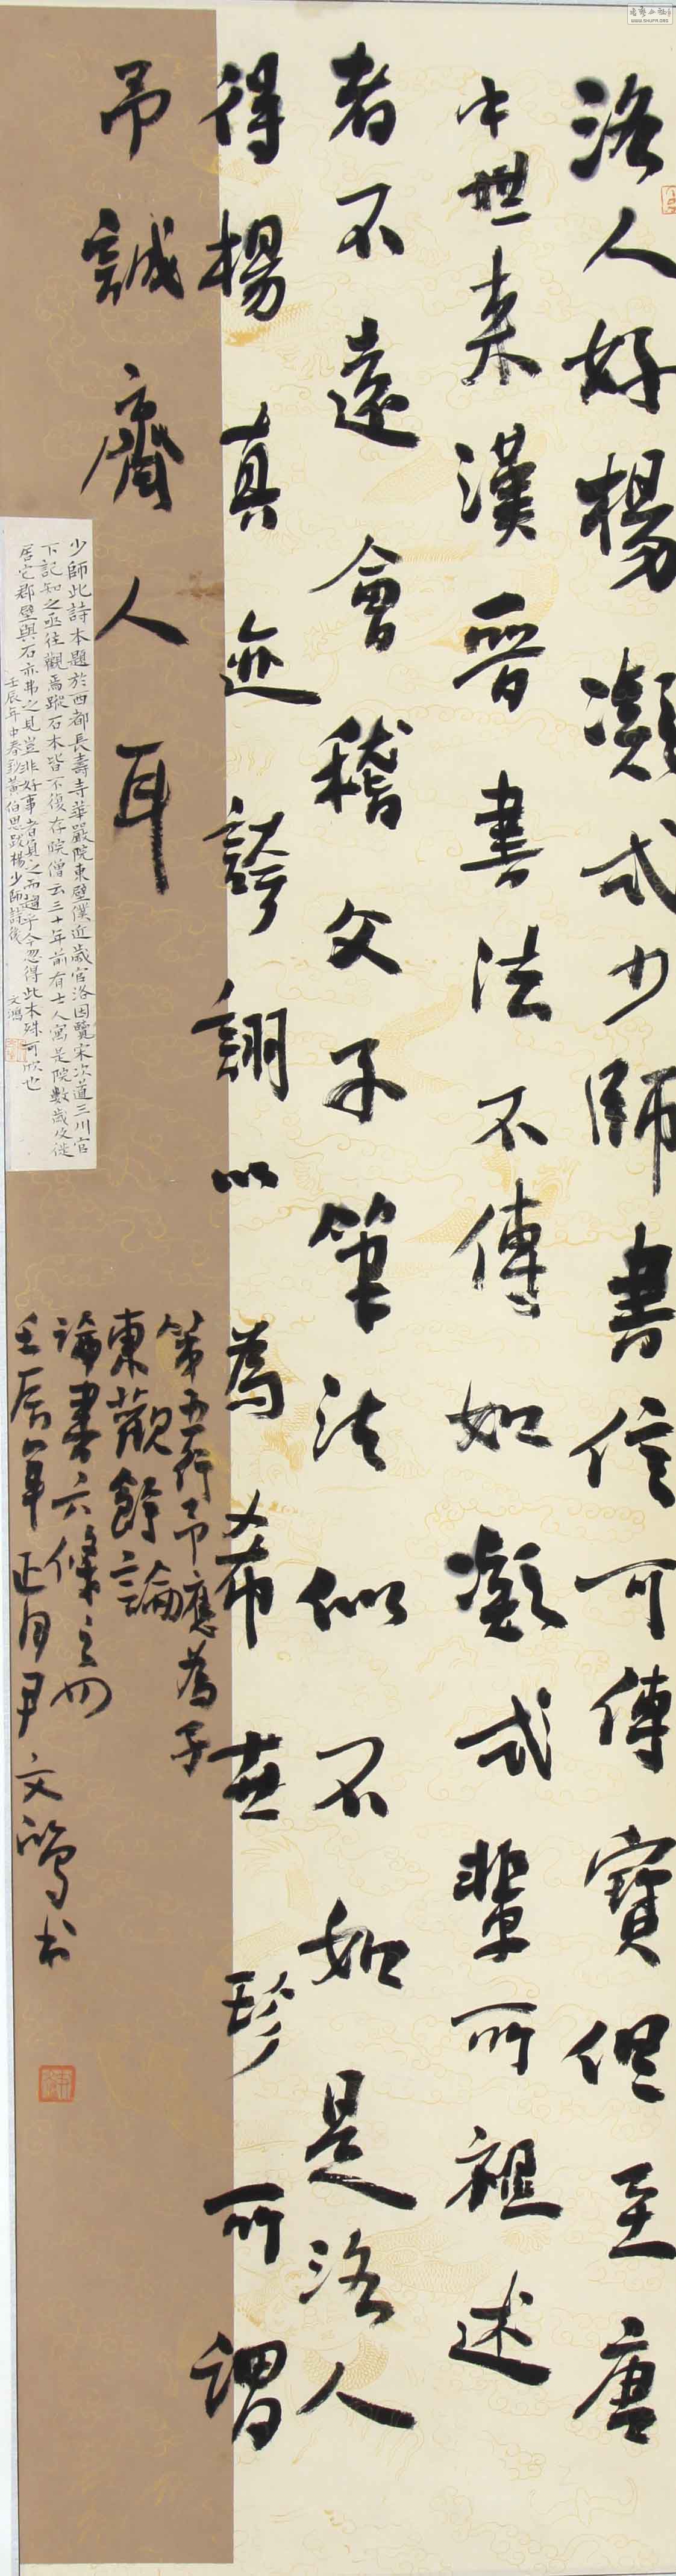 洛人好楊凝式少師書信可傳寶但至唐
中世来漢晉書法不傳如凝式輩所祖述
者不遠會稽父子筆法似不如是洛人
得楊真迹誇詡以為希世珍所謂
予誠齊人耳
第五行予應為子
東觀餘論
論書六條之四
壬辰年正月尹文鴻書
少師此詩本題於西都長壽寺華嚴院東壁僕近歲官洛因覽宋次道三川官
下記知之亟往觀焉蹤石本皆不復存院僧云三十年前有士人寓是院數歲及徙
居它郡壁與石亦弗之見豈非好事者負之而趨乎今忽得此本殊可欣也
壬辰年中春鈔黃伯思跋楊少師詩後 文鴻
WWW.SHUFM.ORG